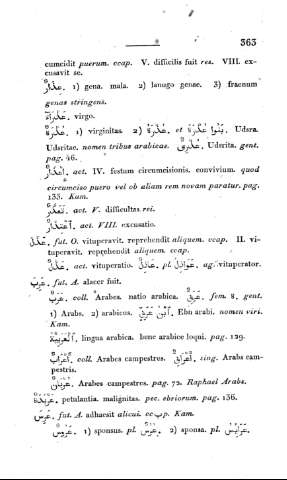 363
cumcidit puerum. ccap. V. difficilis fuit res. VIII. ex-
cusavit se.
عِذَارٌ. 1) gena. mala. 2) lanugo genae. 3) fraenum
genas stringens.
عَذْرَآءُ. virgo.
عُذْرَةٌ. 1) virginitas. 2) عُذْرَةُ et بَنُوا عُذْرَةَ. Udsra.
Udsritae. nomen tribus arabicae. عُذْرِيٌّ. Udsrita. gent.
pag. 46.
إِعْذَارٌ. act. IV. festum circumcisionis. convivium. quod
circumciso puero vel ob aliam rem novam paratur. pag.
133. Kam.
تَعَذُّرٌ. act. V. difficultas rei.
إِعْتِذَارٌ. act. VIII. excusatio.
عَذَلَ. fut. O. vituperavit. reprehendit aliquem. ccap. II. vi-
tuperavit. reprehendit aliquem. ccap.
عَذْلٌ. act. vituperatio. عَاذِلٌ. pl. عَوَاذِلُ. ag. vituperator.
عَرِبَ. fut. A. alacer fuit.
عَرَبٌ. coll. Arabes. natio arabica. عَرَبِيٌّ. fem. 8. gent.
1) Arabs. 2) arabicus. إِبْنُ عَرَبِيٍّ. Ebn arabi. nomen viri.
Kam.
أَلْعَرَبِيَّةُ. lingua arabica. hunc arabice loqui. pag. 129.
أَعْرَابٌ. coll. Arabes campestres. أَعْرَابِيٌّ. sing. Arabs cam-
pestris.
عُرْبَانٌ. Arabes campestres. pag. 72. Raphael Arabs.
عَرْبَدَةٌ. petulantia. malignitas. pec. ebriorum. pag. 136.
عَرِسَ. fut. A. adhaesit alicui. cc ب p. Kam.
عَرُوسٌ. 1) sponsus. pl. عُرُسٌ. 2) sponsa. pl. عَرَايِسُ.